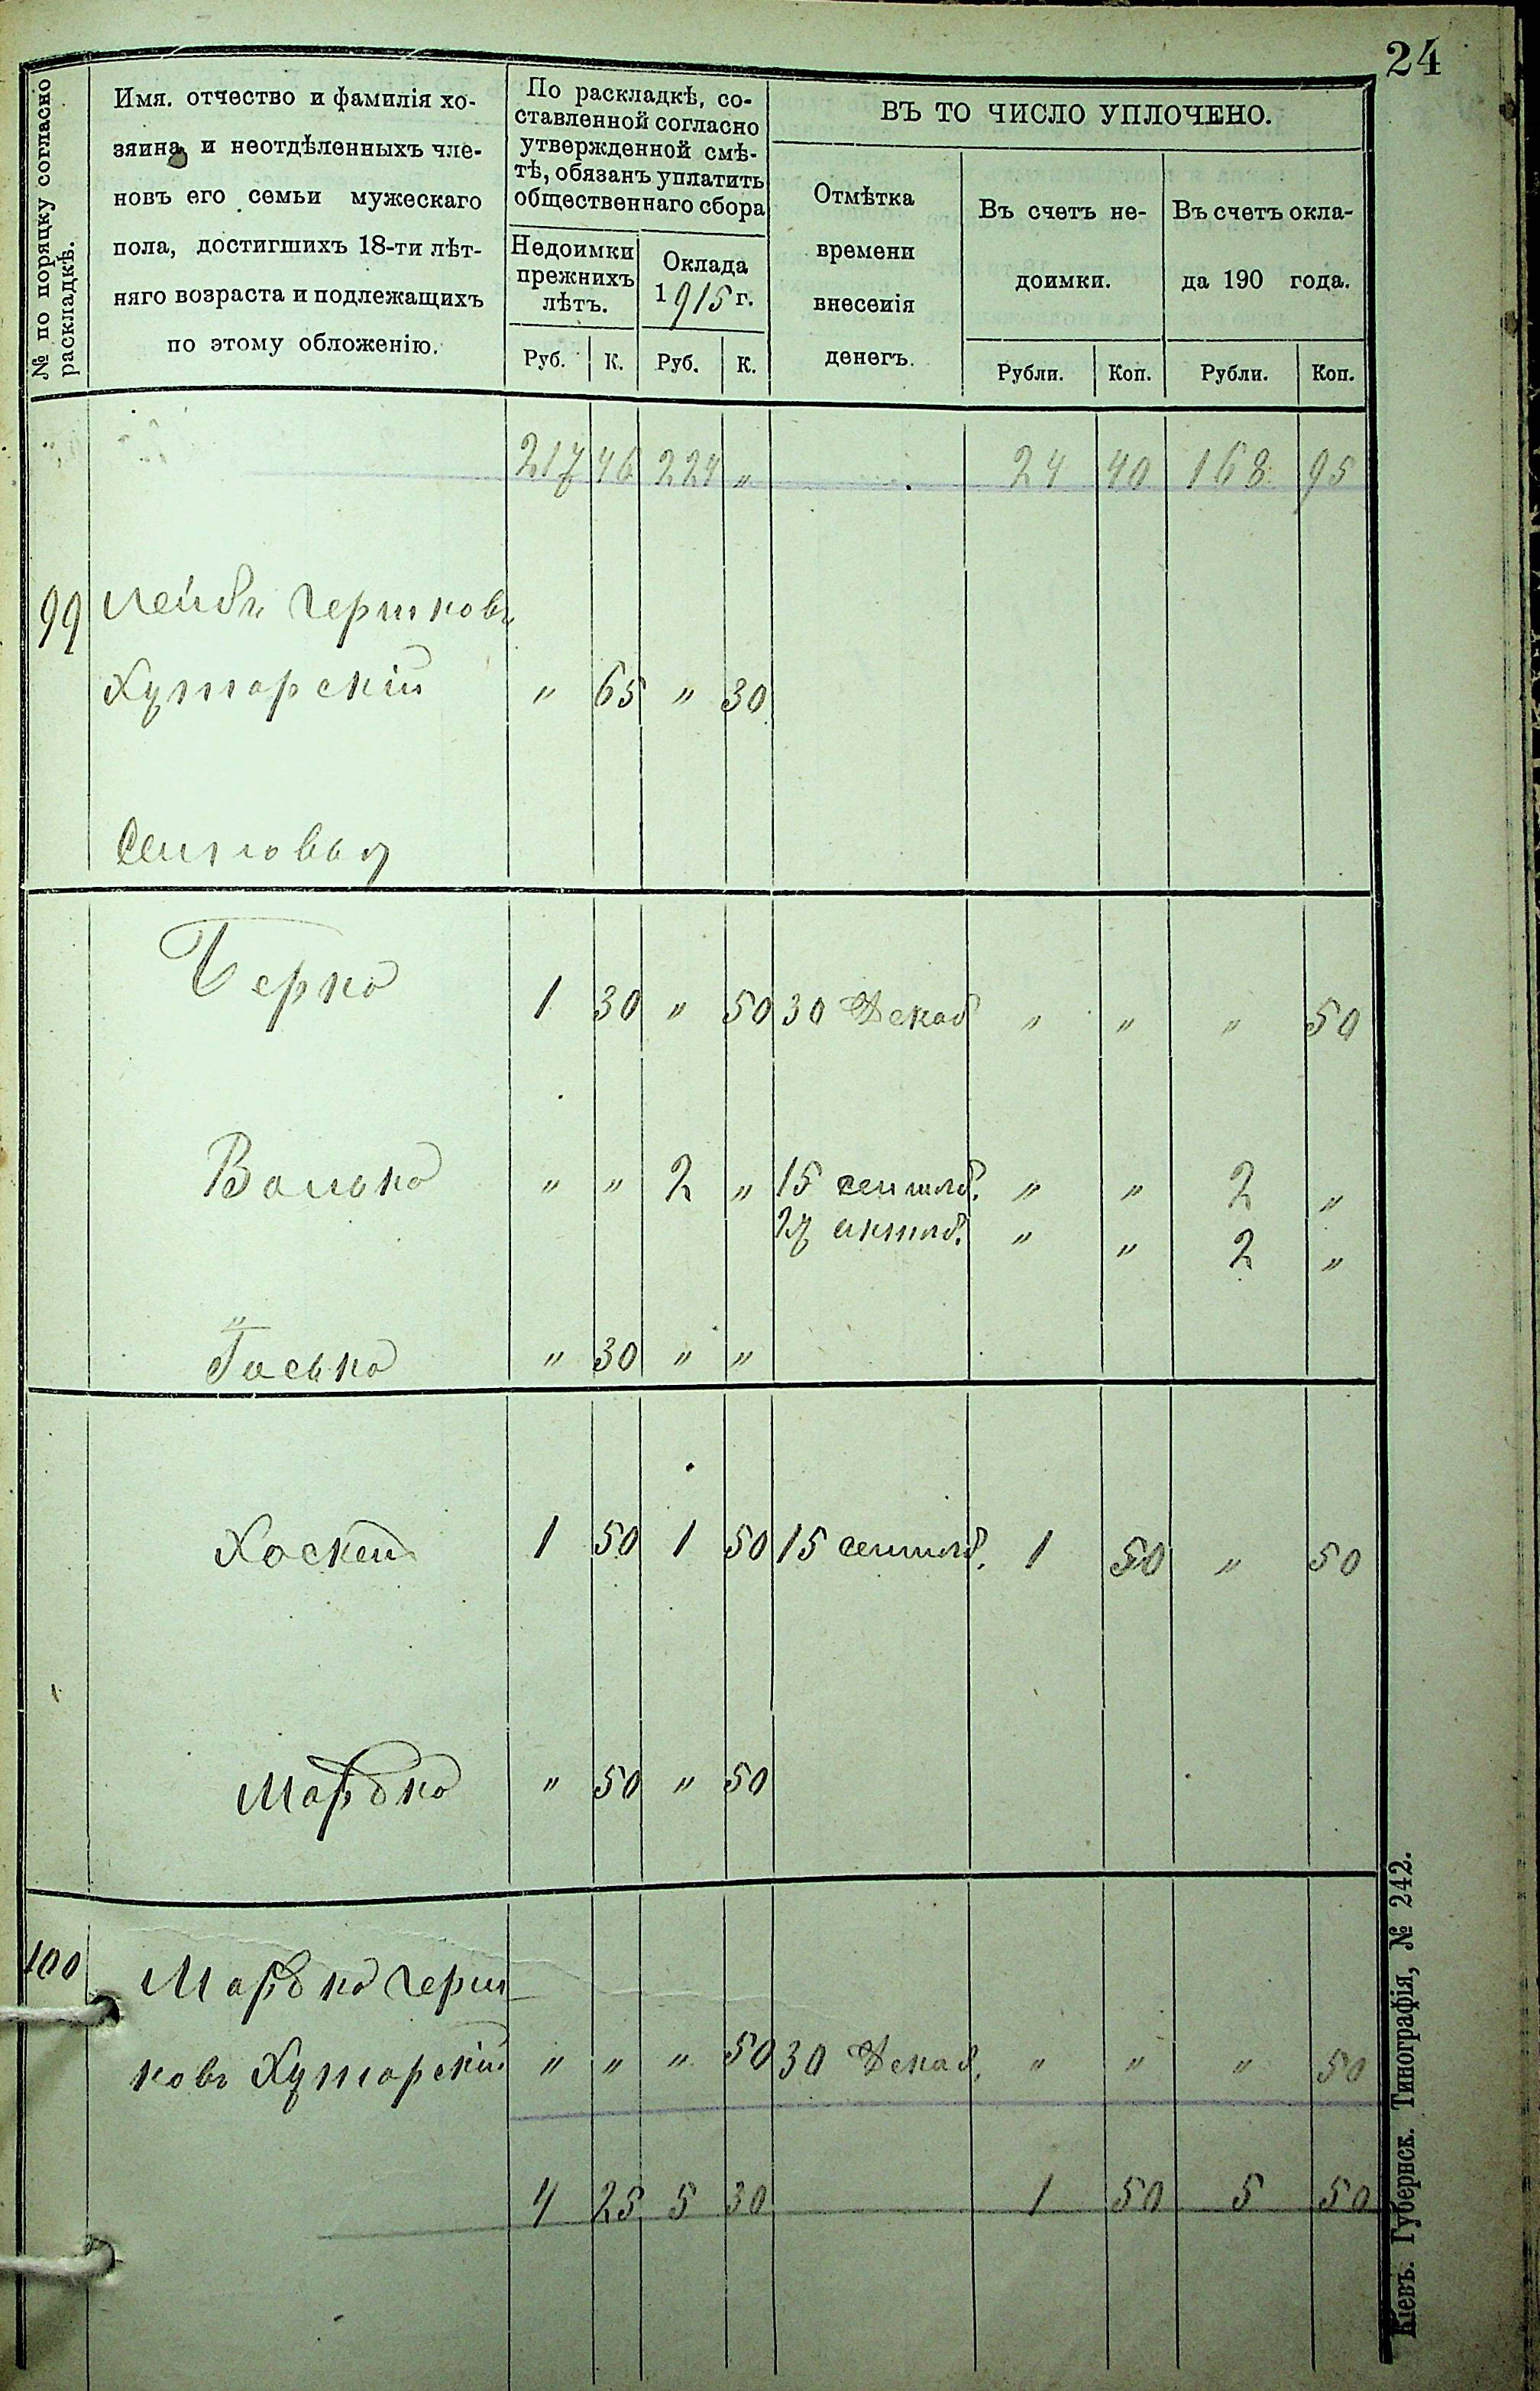 24
№ по порядку согласно
раскладкѣ.
Имя. отчество и фамилія хо-
зяина и неотдѣленныхъ чле-
новъ его семьи мужескаго
пола, достигшихъ 18-ти лѣт-
няго возраста и подлежащихъ
по этому обложенію.
По раскладкѣ, со-
ставленной согласно
утвержденной смѣ-
тѣ, обязанъ уплатить
общественнаго сбора
Недоимки
прежнихъ
лѣтъ.
Оклада
1915 г.
Руб. К. Руб. К.
ВЪ ТО ЧИСЛО УПЛОЧЕНО.
Отмѣтка
времени
внесенія
денегъ.
Въ счетъ не-
доимки.
Въ счетъ окла-
да 190 года.
Рубли. Коп. Рубли. Коп.
217 46 224 „ 24 40 168 95
99 Лейбъ Гершковъ
Хуторскій „ 65 „ 30
Сыновья
Берко 1 30 „ 50 30 Декаб „ „ „ 50
Волько „ „ 2 „ 15 сентяб. „ „ 2 „
27 октяб. „ „ 2 „
„ 30 „ „
Хаскель 1 50 1 50 15 сентяб. 1 50 „ 50
Мордко „ 50 „ 50
100 Мордко Герш-
ковъ Хуторскій „ „ „ 50 30 Декаб. „ „ „ 50
4 25 5 30 1 50 5 50
Кіевъ. Губернск. Типографія, № 242.